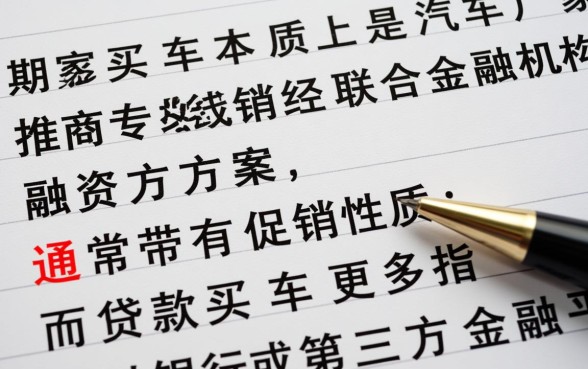 期 买车本质上是汽车厂家
推商专 线销经联合金融机构
融资方方案，
通常带有促销性质；
而贷款买车更多指
银行或第三方金融平